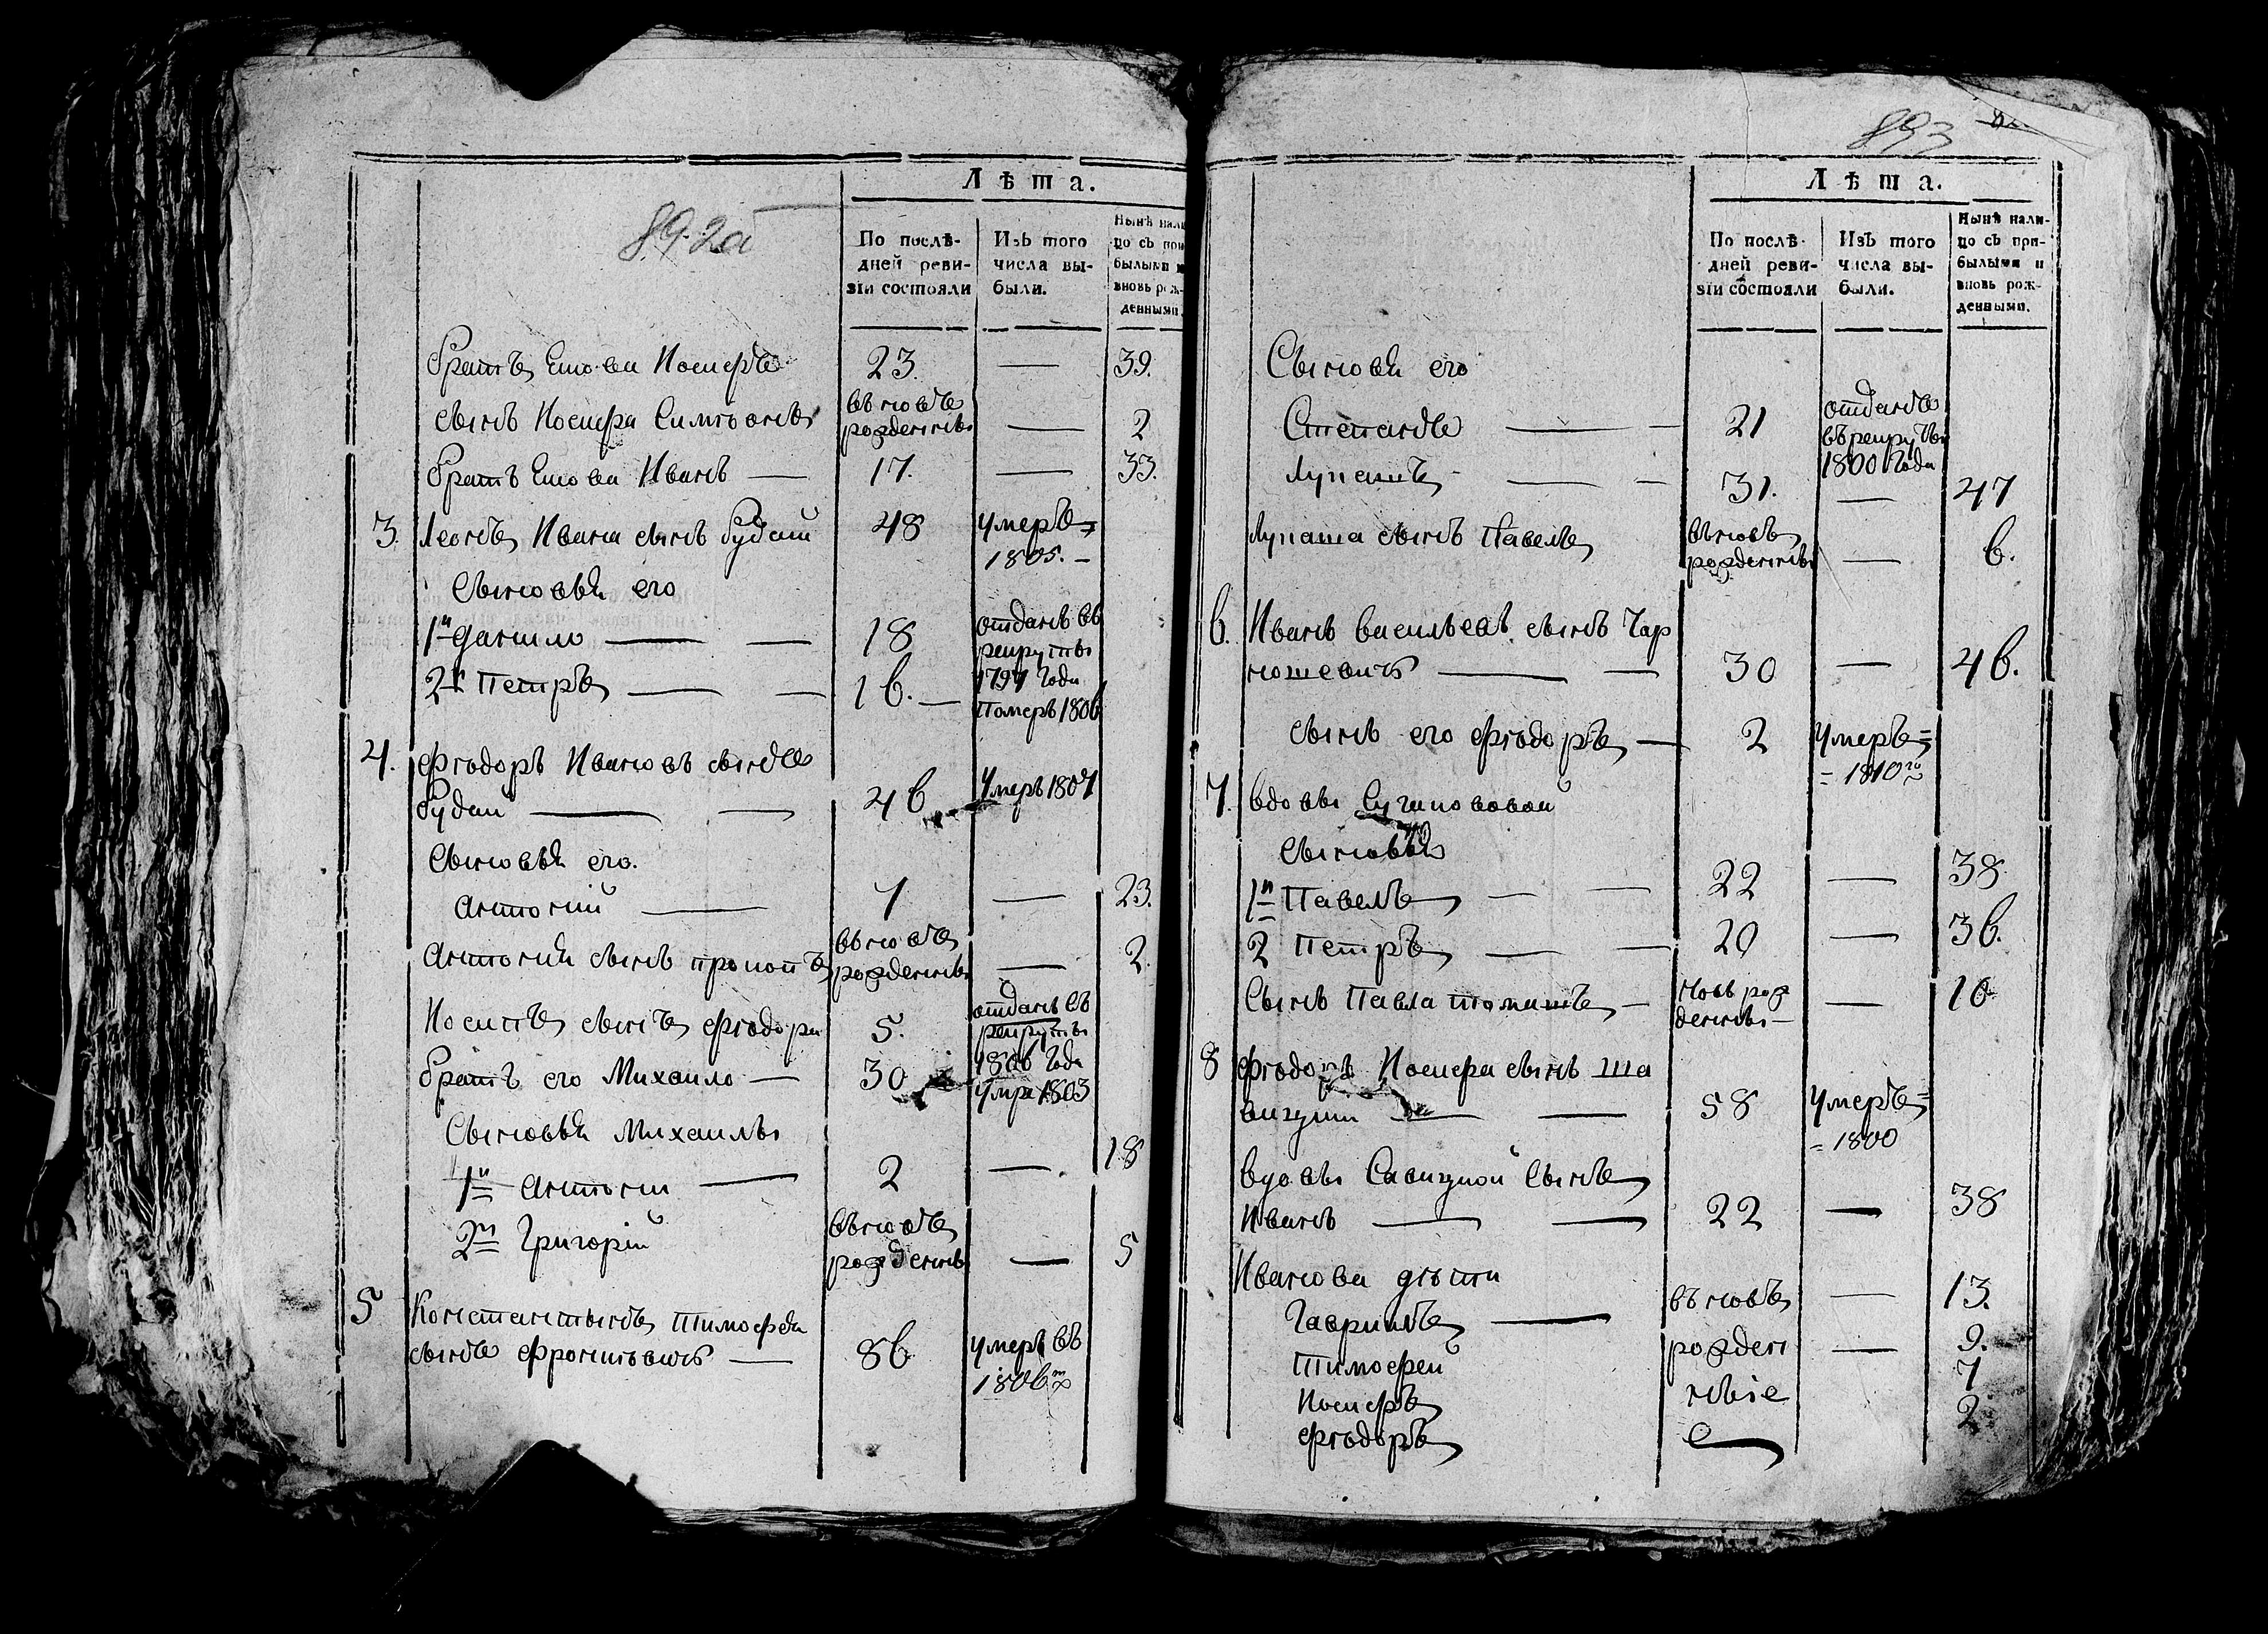 892а
Лѣта.
По послѣ-
дней реви-
зіи состояли
Изъ того
числа вы-
были.
Нынѣ нали
цо съ при
былыми и
вновь рож-
денными.
братъ Якова Иосифъ 23. — 39.
сынъ Иосифа Симъонъ вновѣ
рожденны — 2
братъ Якова Иванъ — 17. — 33.
3. Леонъ Ивана сынъ Будай 48 умеръ=
1805. —
Сыновья его
1й данило — — 18 отданъ въ
рекруты
1797 Года
2й Петръ — — 16. — Померъ 1806
4. Фіодоръ Ивановъ сынъ
Будаи — — 46 Умеръ 1807
Сыновья его.
Антоній — 7 — 23.
Антонія сынъ прокопъ вновѣ
рожденны — 2.
Иосипъ сынъ Фіодора 5. отданъ въ
рекруты
1806 Года
братъ его Михайло — 30 Умре 1803
Сыновья Михаилы
1й Антони — 2 — 18
2й Григорій вновѣ
рожденны — 5
5 Константынъ Тимофея
сынъ — 86 умеръ въ
1806м
893
Лѣта.
По послѣ-
дней реви-
зіи состояли
Изъ того
числа вы-
были.
Нынѣ нали-
цо съ при-
былыми и
вновь рож-
денными.
Сыновья его
Степанъ — — 21 отданъ
въ рекруты
1800 Года
Лупашъ — — 31. — 47
Лупаша сынъ Павелъ вновѣ
рожденны — 6.
6. Иванъ Васильевъ сынъ Чар
ношевичъ — — 30 — 46.
сынъ его Фіодоръ — 2 умеръ=
= 1810го
7. вдовы
Сыновья
1й Павелъ — — 22 — 38
2 Петръ — — 20 — 36.
Сынъ Павла томашъ — новъ рож
денны — — 16
8 Фіодоръ Иосифа сынъ Ша
— — 58 умеръ=
= 1800
вдовы Сынъ
Иванъ — — 22 — 38
Иванова дѣти
Гаврилъ — вновѣ — 13.
Тимофей рожден — 9.
Иосифъ ныіе 7
Фіодоръ 2